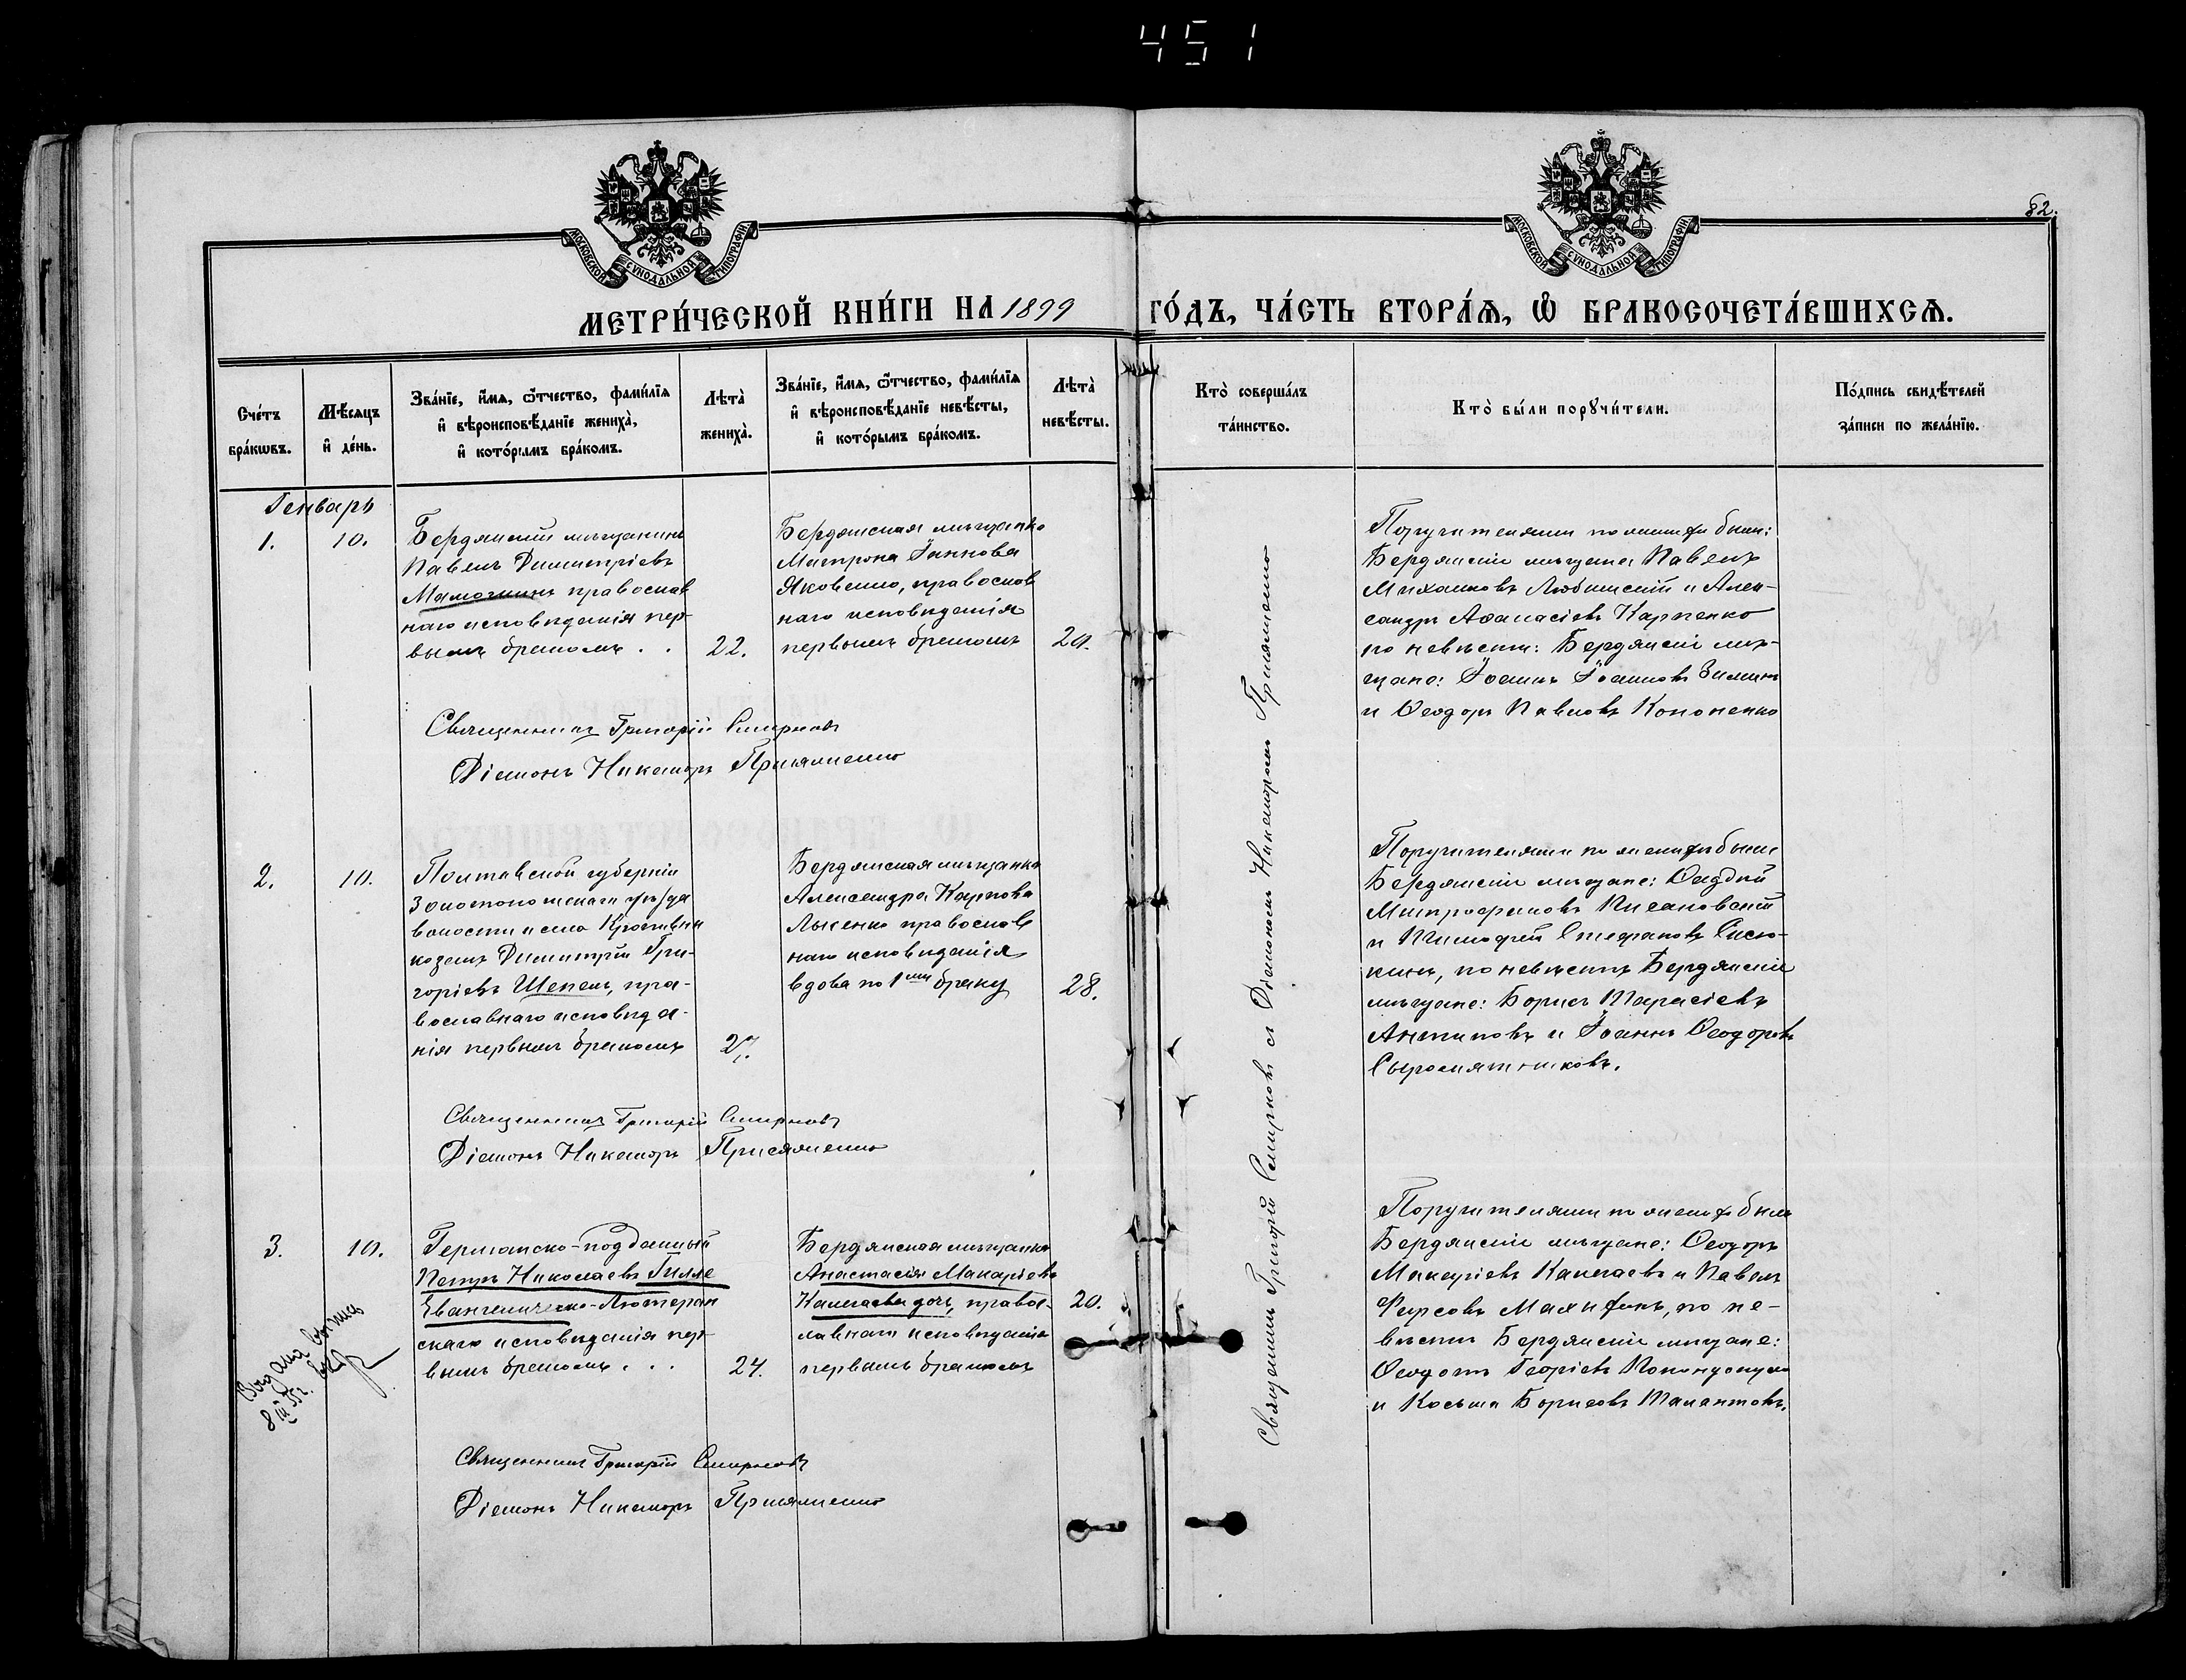 451
82.
МОСКОВСКОЙ СѴНОДАЛЬНОЙ ТИПОГРАФІИ
МОСКОВСКОЙ СѴНОДАЛЬНОЙ ТИПОГРАФІИ
МЕТРИ́ЧЕСКОЙ КНИ́ГИ НА 1899 ГО́ДЪ, ЧА́СТЬ ВТОРА́Ѧ, Ѡ БРАКОСОЧЕТА́ВШИХСѦ.
Сче́тъ бра́кѡвъ.
Мѣ́сѧцъ и҆ де́нь.
Зва́нїе, и҆́мѧ, ѻ҆́тчество, фами́лїѧ и҆ вѣроисповѣ́данїе жениха̀, и҆ кото́рымъ бра́комъ.
Лѣта̀ жениха̀.
Зва́нїе, и҆́мѧ, ѻ҆́тчество, фами́лїѧ и҆ вѣроисповѣ́данїе невѣ́сты, и҆ кото́рымъ бра́комъ.
Лѣта̀ невѣ́сты.
Кто̀ соверша́лъ та́инство.
Кто̀ бы́ли порꙋчи́тели.
По́дпись свидѣ́телей за́писи по жела́нїю.
Генварь
1.
10.
Бердянскій мѣщанинъ
Павелъ Димитріевъ
православ
наго исповѣданія пер-
вымъ бракомъ . .
22.
Бердянская мѣщанка
Матрона Іаннова
Яковенко, православ
наго исповѣданія
первымъ бракомъ
20.
Поручителями по женихѣ были:
Бердянскіе мѣщане Павелъ
Михаиловъ Любинскій и Алек-
сандръ Аѳанасіевъ Карпенко
по невѣстѣ: Бердянскіе мѣ-
щане: Іоаннъ Іоанновъ Зиминъ
и Ѳеодоръ Павловъ Кононенко
Священникъ Григорій Смирновъ
Діаконъ Никаноръ Присяженко
2.
10.
Полтавской губерніи
Золотоношскаго уѣзда
волости и села Кропивни
козакъ Димитрій Гри-
горіевъ Шепель, пра-
вославнаго исповѣда-
нія первымъ бракомъ
27.
Бердянская мѣщанка
Александра Карпова
Лысенко православ
наго исповѣданія
вдова по 1му браку
28.
Поручителями по женихѣ были
Бердянскіе мѣщане:
Митрофановъ Писановскій
и Тимофей Стефановъ Сисю-
кинъ, по невѣстѣ Бердянскіе
мѣщане: Борисъ Тарасіевъ
Антиповъ и Іоаннъ Ѳеодоровъ
Сыромятниковъ.
Священникъ Григорій Смирновъ
Діаконъ Никаноръ Присяженко
3.
10.
Германско-подданный
Петръ Николаевъ Гилле
Евангелическо-Лютеран
скаго исповѣданія пер-
вымъ бракомъ . . .
24.
Бердянская мѣщанка
Анастасія Макаріева
Калгаева дочь, правос-
лавнаго исповѣданія
первымъ бракомъ
20.
Поручителями по женихѣ были
Бердянскіе мѣщане: Ѳеодоръ
Макаріевъ Калгаевъ и Павелъ
Фирсовъ по не-
вѣстѣ Бердянскіе мѣщане:
Ѳеодотъ Георгіевъ
и Косьма Борисовъ Талантовъ.
Выдана выпись
8 III 35г.
Священникъ Григорій Смирновъ
Діаконъ Никаноръ Присяженко
Священникъ Григорій Смирновъ съ Діакономъ Никаноромъ Присяженко